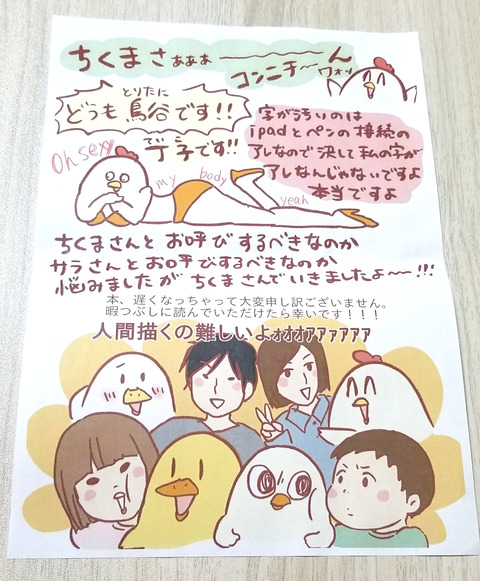 ちくまさぁぁぁ〜ん
コンニチ〜ワォッ
とりたに
どうも鳥谷です!!
でこ
丁子です!!
Oh sexy
my body
yeah
字がうちいのは
ipadとペンの接続の
アレなので決して私の字が
アレなんじゃないですよ
本当ですよ
ちくまさんとお呼びするべきなのか
サラさんとお呼びするべきなのか
悩みましたがちくまさんでいきましたよ〜!!!
本、遅くなっちゃって大変申し訳ございません。
暇つぶしに読んでいただけたら幸いです!!!
人間描くの難しいよォオオアアァアアア